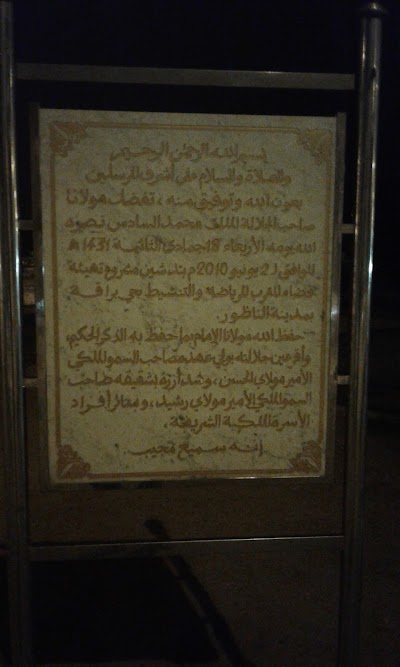 بسم الله الرحمن الرحيم
والصلاة والسلام على أشرف المرسلين
بعون الله وتوفيق منه، تفضل مولانا
صاحب الجلالة الملك محمد السادس نصره
الله يومه الأربعاء 18 جمادى الثانية 1431 هـ
الموافق لـ 2 يونيو 2010 م بتدشين مشروع تهيئة
فضاء المغرب للرياضة والتنشيط بحي براقة
بمدينة الناظور.
حفظ الله مولانا الإمام بما حفظ به الذكر الحكيم،
وأقر عين جلالته بولي عهده صاحب السمو الملكي
الأمير مولاي الحسن، وشد أزره بشقيقه صاحب
السمو الملكي الأمير مولاي رشيد، وسائر أفراد
الأسرة الملكية الشريفة،
إنه سميع مجيب.